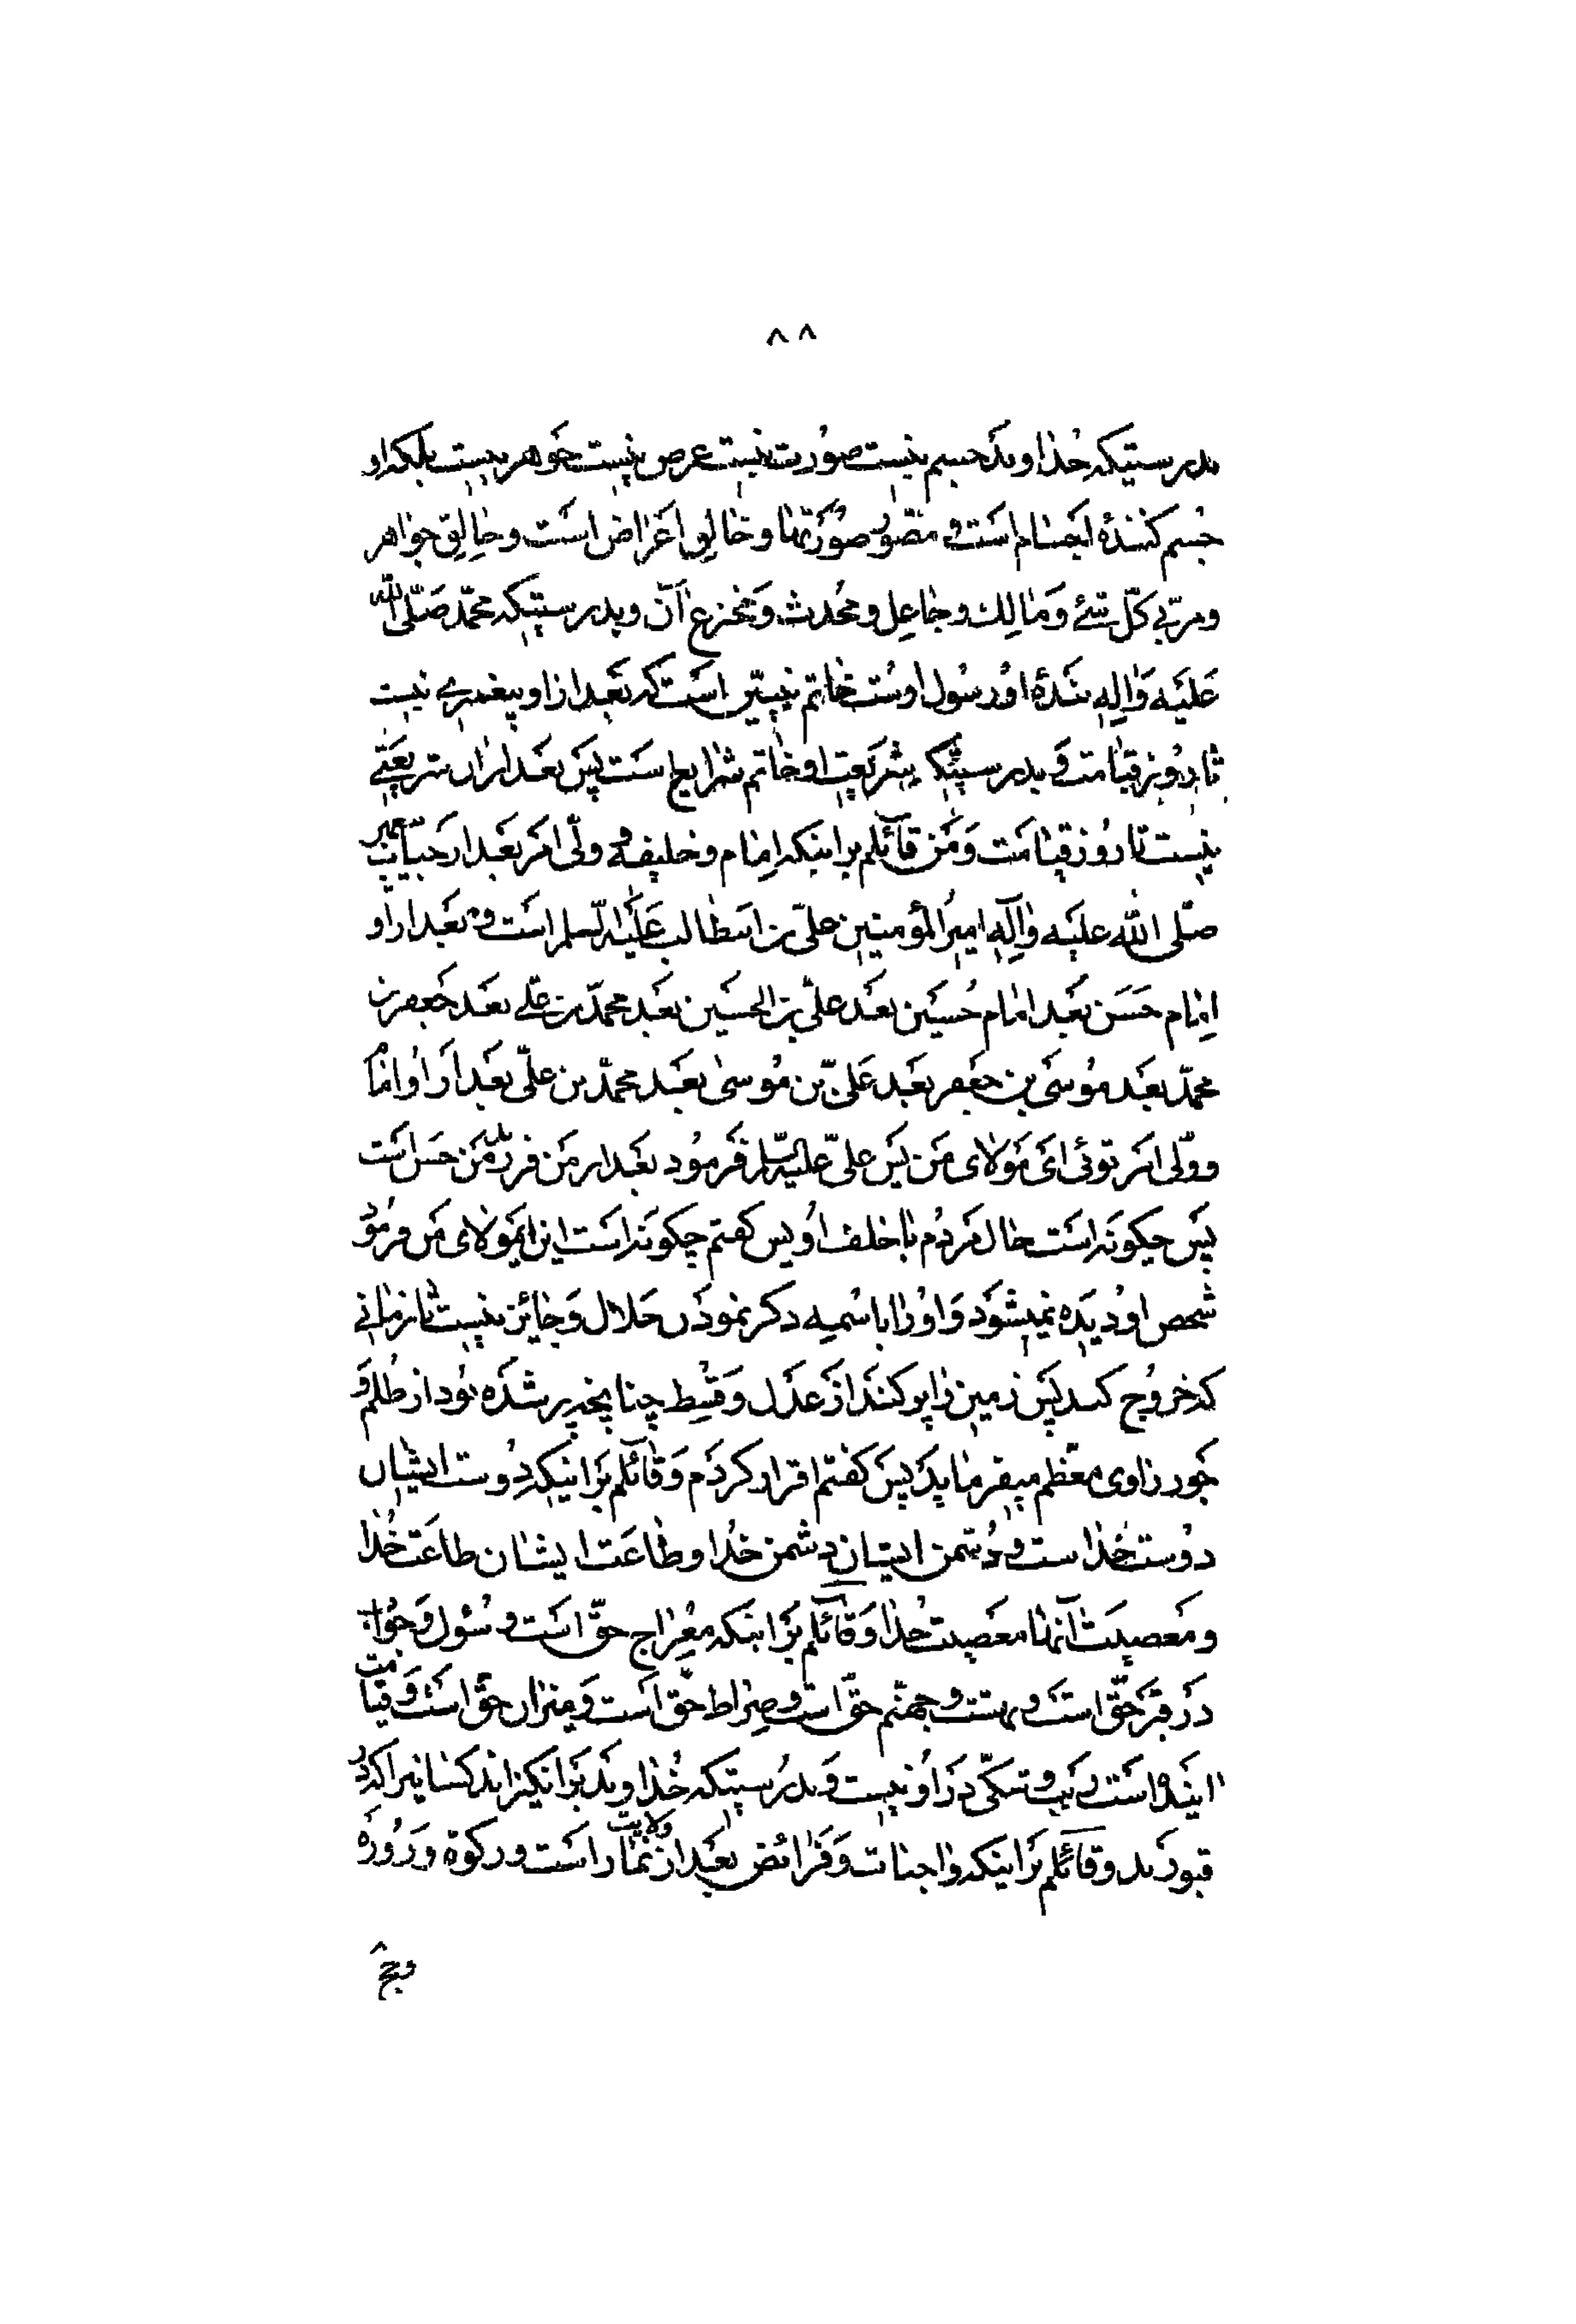 ۸۸
بدرستیکه خداوند جسم نیست صورت نیست عرض نیست جوهر نیست بلکه او
جسم کنندهٔ اجسام است و مصّور صورتها و خالق اعراض است و خالق جواهر
و مربّی کلّ شئ و مالک و جاعل و محدث و مخترع آن و بدرستیکه محمّد صلّی اللّه
علیه و اله بندهٔ او و رسول اوست خاتم نبیّین است که بعد از او پیغمبری نیست
تا روز قیامت و بدرستیکه شریعت او خاتم شرایع است پس بعد از ان شریعتی
نیست تا روز قیامت و من قائلم بر اینکه امام و خلیفه و ولّی امر بعد از جناب پیغمبر
صلّی اللّه علیه و اله امیر المؤمنین علیّ بن ابیطالب علیه السّلام است و بعد از او
امام حسن بعد امام حسین بعد علیّ بن الحسین بعد محمّد بن علی بعد جعفر بن
محمّد بعد موسی بن جعفر بعد علیّ بن موسی بعد محمّد بن علیّ بعد از او امام
و ولّی امر توئی ای مولای من پس علیّ علیه السّلام فرمود بعد از من فرزند من حسن است
پس چکونه است حال مردم با خلف او پس کفتم چکونه است این ایمولای من فرمود
شخص او دیده نمیشود و او را باسمه ذکر نمودن حلال و جائز نیست تا زمانی
که خروج کند پس زمین را پر کند از عدل و قسط چنانچه پر شده بود از ظلم و
جور راوی معظم میفرماید پس کفتم اقرار کردم و قائلم بر اینکه دوست ایشان
دوست خداست و دشمن ایشان دشمن خدا و طاعت ایشان طاعت خدا
و معصیت آنها معصیت خدا و قائلم بر اینکه معراج حقّ است و سؤل و جواب
در قبر حقّ است و بهشت و جهنّم حقّ است و صراط حقّ است و میزان حقّ است و قیامت
اینده است و ریب و شکّی در او نیست و بدرستیکه خداوند بر انکیزاند کسانیرا که در
قبورند و قائلم بر اینکه واجبات و فرائض بعد از ولایت نماز است و زکوة و روزه
و حج